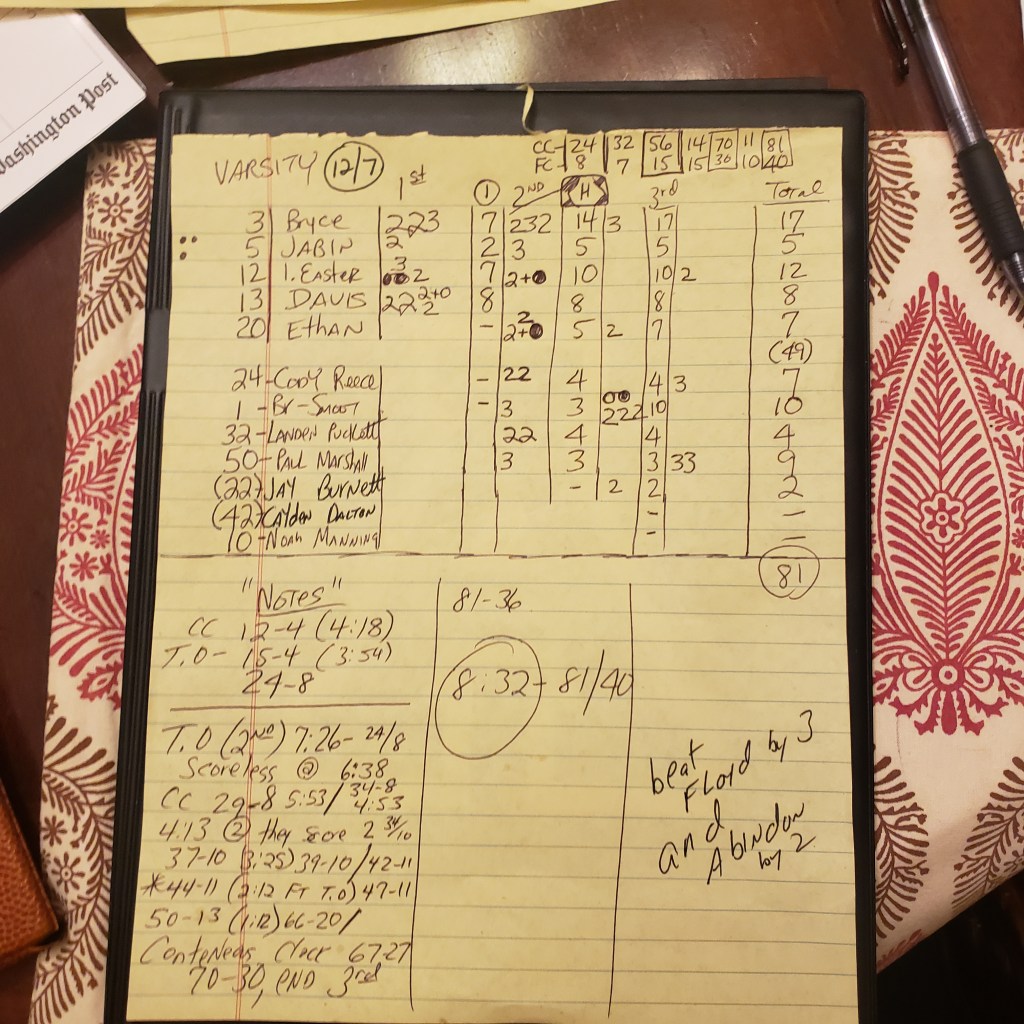 Washington Post
CC- 24 32 56 14 70 11 81
FC- 8 7 15 15 30 10 40
VARSITY 12/7 1st 1 2ND H 3rd Total
3 Bryce 223 7 232 14 3 17 17
5 JABIN 2 2 3 5 5 5
12 I. EASTER 3 2 7 2+ 10 10 2 12
13 DAVIS 22 2+0 2 8 8 8 8
20 EtHAN - 2 2+ 5 2 7 7
(49)
24-CODY Reece - 22 4 4 3 7
1 - Br-Smoot - 3 3 00 222 10 10
32-LANDEN Puckett 22 4 4 4
50-PAUL Marshall 3 3 3 33 9
(22)-JAY BurNett - 2 2 2
(42)CAYDeN DALTON - -
10-NoaH MANNING - -
81
"NOTES"
CC 12-4 (4:18)
T.O- 15-4 (3:54)
24-8
T.O (2ND) 7:26- 24/8
Scoreless @ 6:38
CC 29-8 5:53/ 34-8 4:53
4:13 2 they score 2 34/10
37-10 (3:25) 39-10/42-11
*44-11 (2:12 FT T.O) 47-11
50-13 (1:12) 66-20/
Clock 67-27
70-30, END 3rd
81-36
8:32- 81/40
beat
FLOID by 3
and
ABINDON
by 2